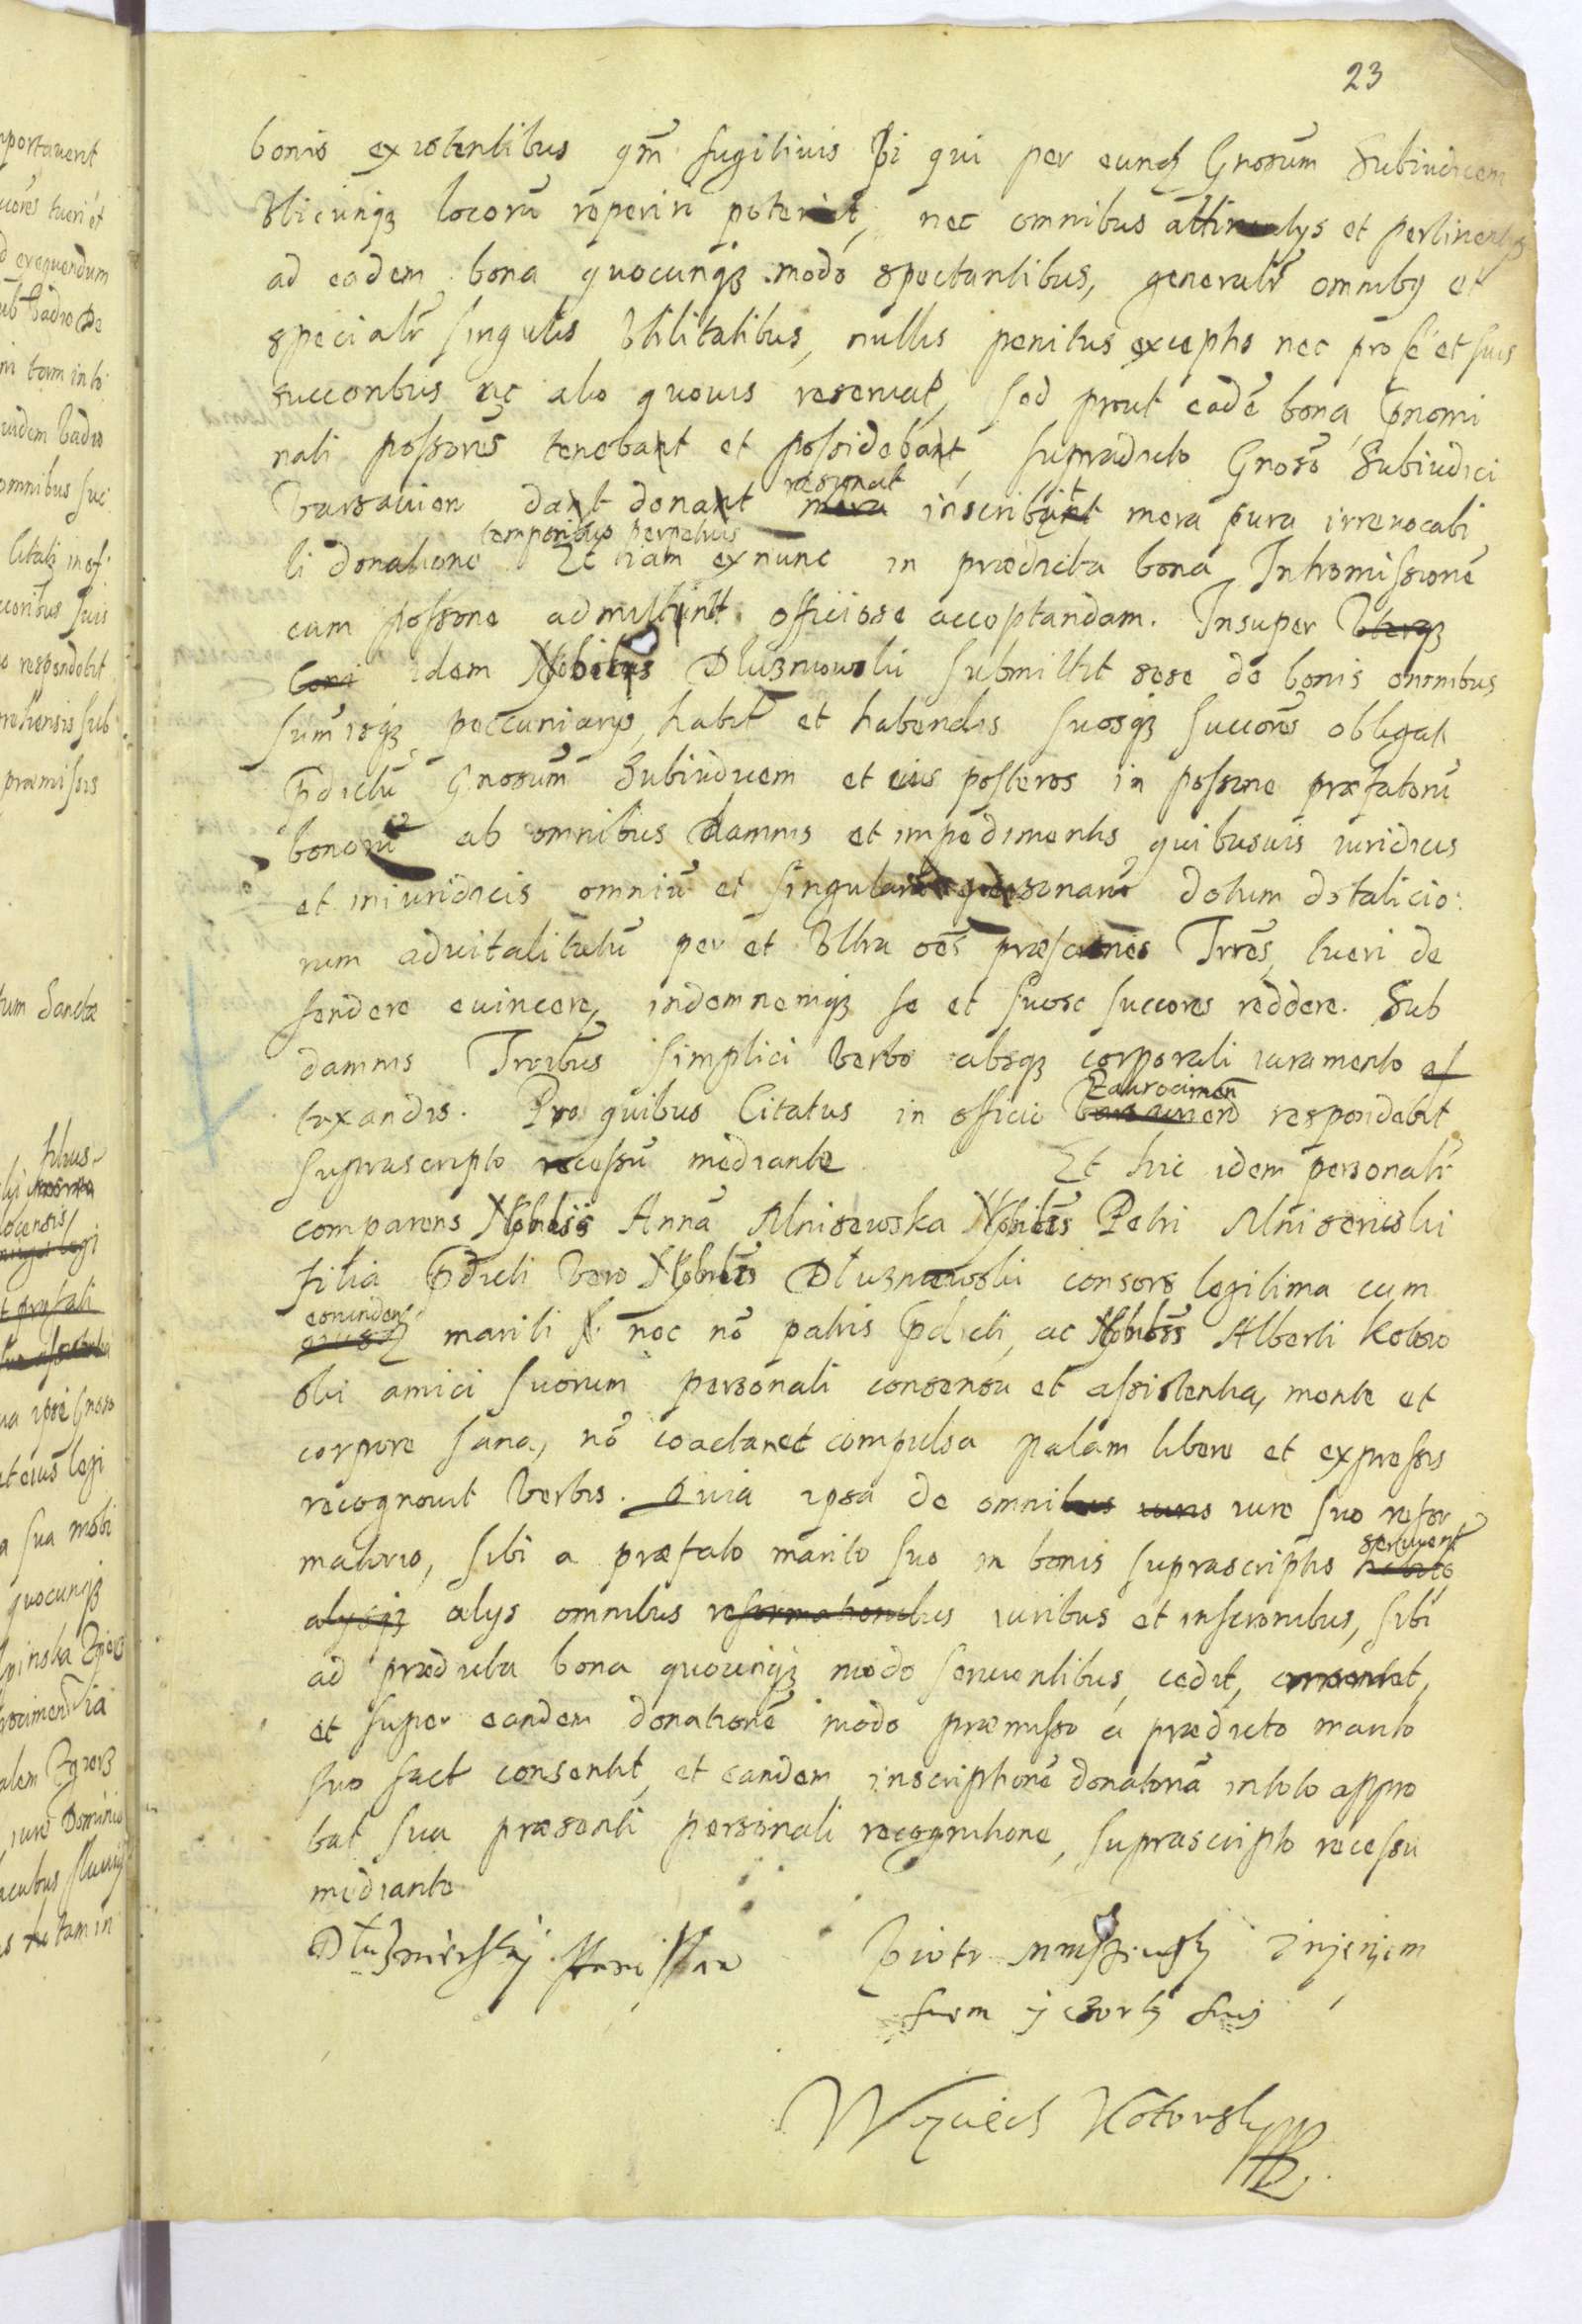 23
bonis existentibus qm̃ fugitivis si qui per eunq Gnosum Subiudicem
Vbicunq locorũ reperiri poterint, nec omnibus attinentys et pertinentys
ad eadem bona quocunq modo spectantibus, generalr omnibq et
specialr singulis Vtilitatibus, nullis penitus exceptis nec pro se et suis
succoribus ac alio quouis reseruat, sed prout eadẽ bona pnomi
nati possores tenebant et possidebant, supradicto Gnoso Subiudici
resignat
Varsauien dant donant mera inscribunt mera pura irreuocabi
temporibus perpetuis
li donatione Et iam ex nunc in prædicta bona Intromissionẽ
cum possone admittunt officiose acceptandam. Insuper Vterq
boni idem Nobilis Dluzniewski submittit sese de bonis omnibus
sum̃isq peccuniarys, habit et habendis suosq succores obligat
pdictũ Gnosum Subiudicem et eius posteros in possone præfatorũ
bonorũ ab omnibus damnis et impedimentis quibusuis iuridicis
et iniuridicis omniũ et singularũ personarũ dotum dotalicio
rum aduitalitatũ per et Vltra oẽs præscriones Trrẽs, tueri de
fendere euincere, indemnemq se et suosc succores reddere. Sub
damnis Trribus simplici verbo absq corporali iuramento es
Zaurocimen
tixandis. Pro quibus Citatus in officio Varsauien respondebit
suprascripto recessu mediante Et hic idem personalr
comparens Nobilis Anna Mniszewska Nobilis Petri Mniszewski
filia pdicti Vero Nobilis Dluzniewski consors legitima cum
eorundem
eiusq mariti nec nõ patris pdicti, ac Nobilis Alberti Kotow
ski amici suorum personali consensu et assistentia, mente et
corpore sana, nõ coacta nec compulsa palam libere et expressis
recognouit Verbis. Quia ipsa de omnibus iuris iure suo refor
matorio, sibi a præfato marito suo in bonis suprascriptis
seruient
alysq alys omnibus reformationibus iuribus et inscronibus, sibi
ad prædicta bona quocunq modo seruientibus, cedit,
et super eandem donationẽ modo præmisso a prædicto marito
suo fact consentit, et eandem inscriptionẽ donatoriã in toto appro
bat sua præsenti personali recognitione, suprascripto recessu
mediante
Dłuzniewsky
Piotr Mnyszewsky Imieniem
swem y czorky swej
Woyciech Kotowsky